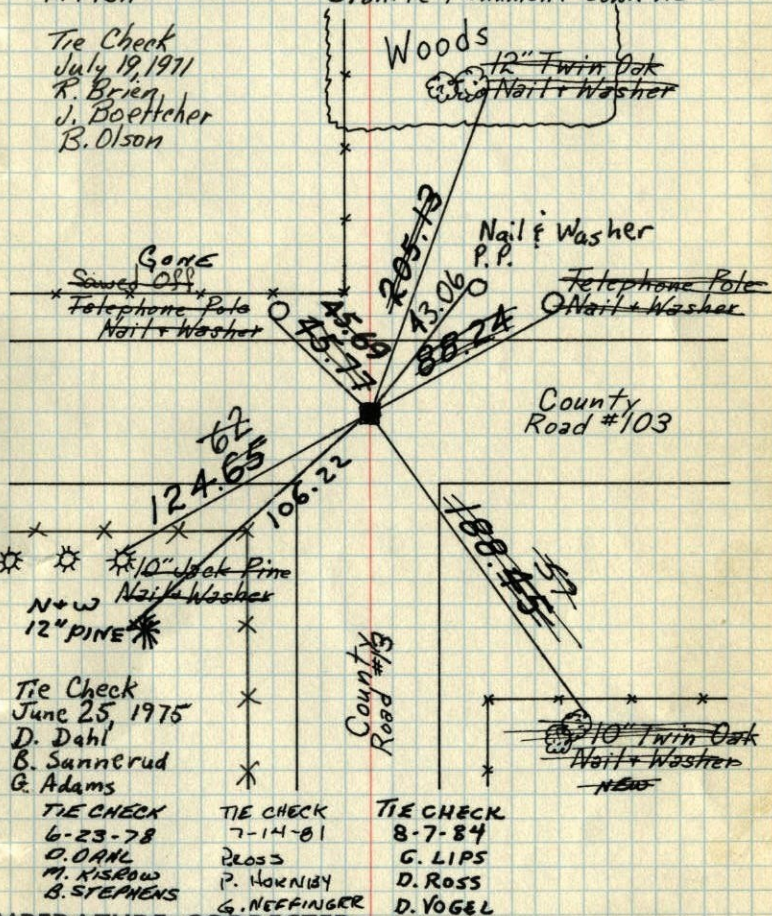 Tie Check
July 19, 1971
R. Brien
J. Boettcher
B. Olson
Woods
12" Twin Oak
Nail + Washer
205.13
Nail & Washer
P.P.
43.06
Telephone Pole
Nail + Washer
88.24
GONE
Sawed Off
Telephone Pole
Nail + Washer
45.69
45.77
County
Road #103
62
124.65
106.22
10" Jack Pine
Nail + Washer
N+W
12" PINE
188.45
57
County
Road #13
10" Twin Oak
Nail + Washer
NEW
Tie Check
June 25, 1975
D. Dahl
B. Sunnerud
G. Adams
TIE CHECK
6-23-78
D. DAHL
M. KISROW
B. STEPHENS
TIE CHECK
7-14-81
P. HORNBY
G. NEFFINGER
TIE CHECK
8-7-84
G. LIPS
D. ROSS
D. VOGEL